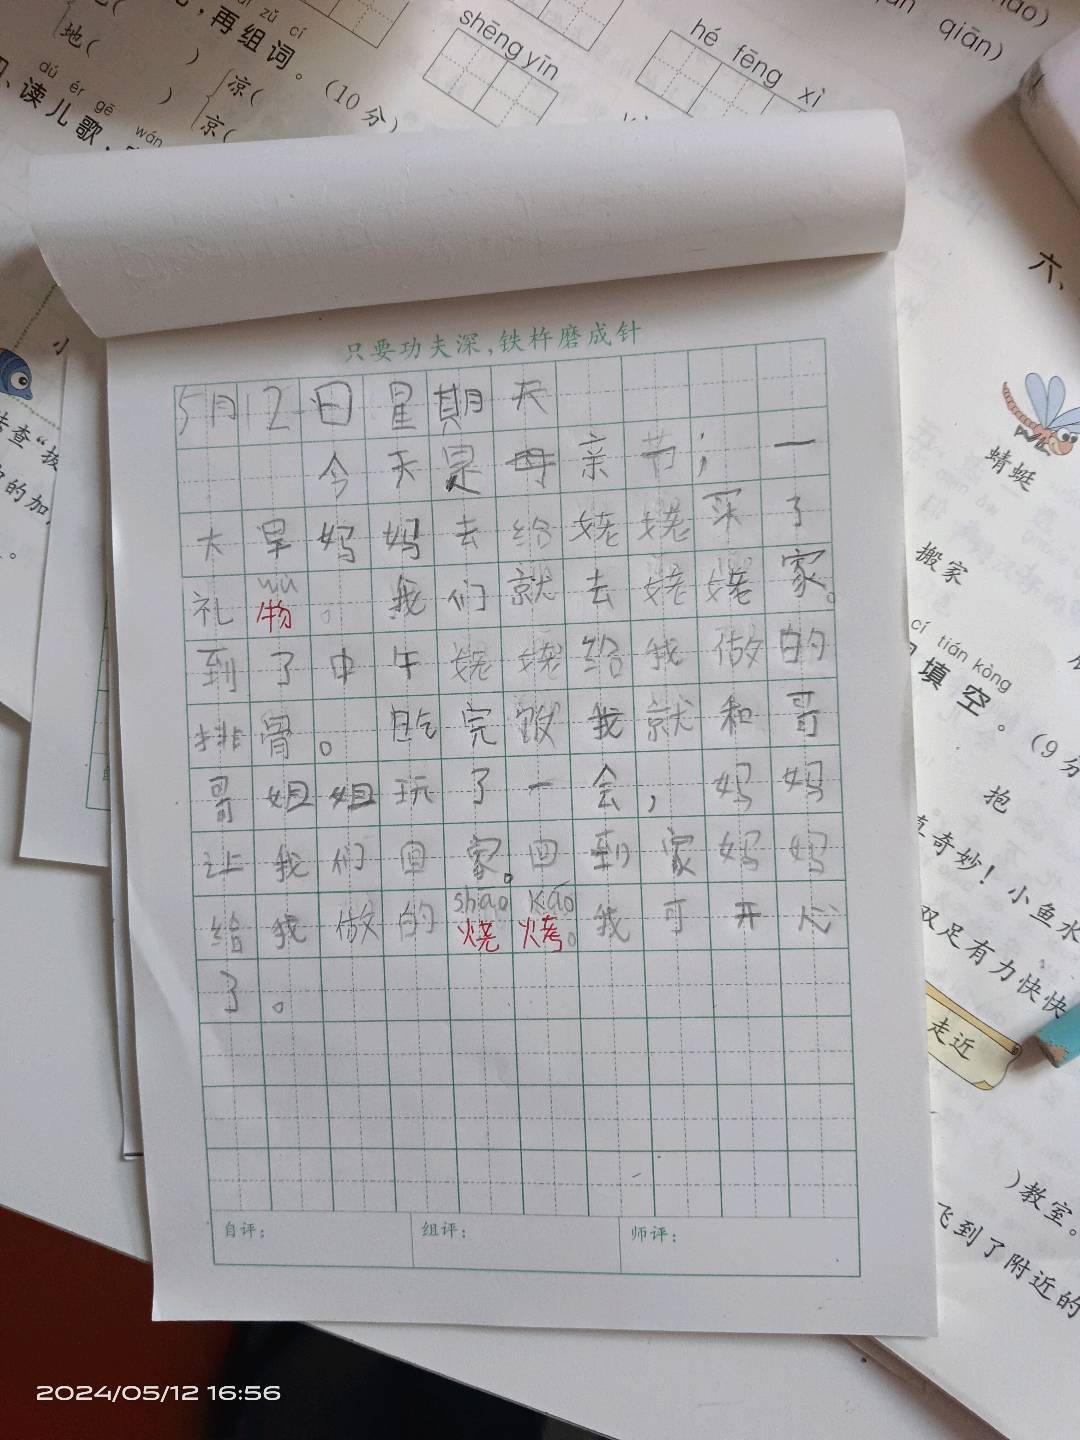 再组词。(10分)
地( )
凉(
京(
dú ér gē wán
读儿歌,
shēng yīn
hé fēng xì
qiān)
只要功夫深,铁杵磨成针
5月12日星期天
今天是母亲节;一
大早妈妈去给姥姥买了
礼wu物。我们就去姥姥家。
到了中午姥姥给我做的
排骨。吃完饭我就和哥
哥姐姐玩了一会,妈妈
让我们回家。回到家妈妈
给我做的shāo kǎo烧烤。我可开心
了。
自评: 组评: 师评:
六、
蜻蜓
搬家
cí tián kòng
填空。(9分
抱
真奇妙!小鱼水
双足有力快快
走近
)教室。
飞到了附近的
小
去查“拔
的加
。
2024/05/12 16:56